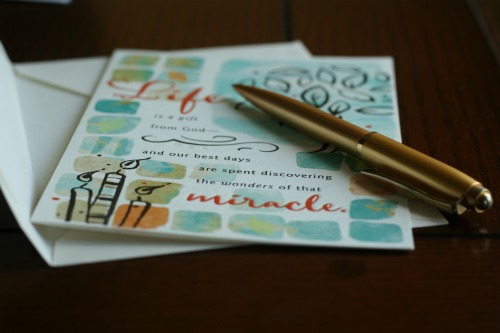 Life
is a gift
from God—
and our best days
are spent discovering
the wonders of that
miracle.